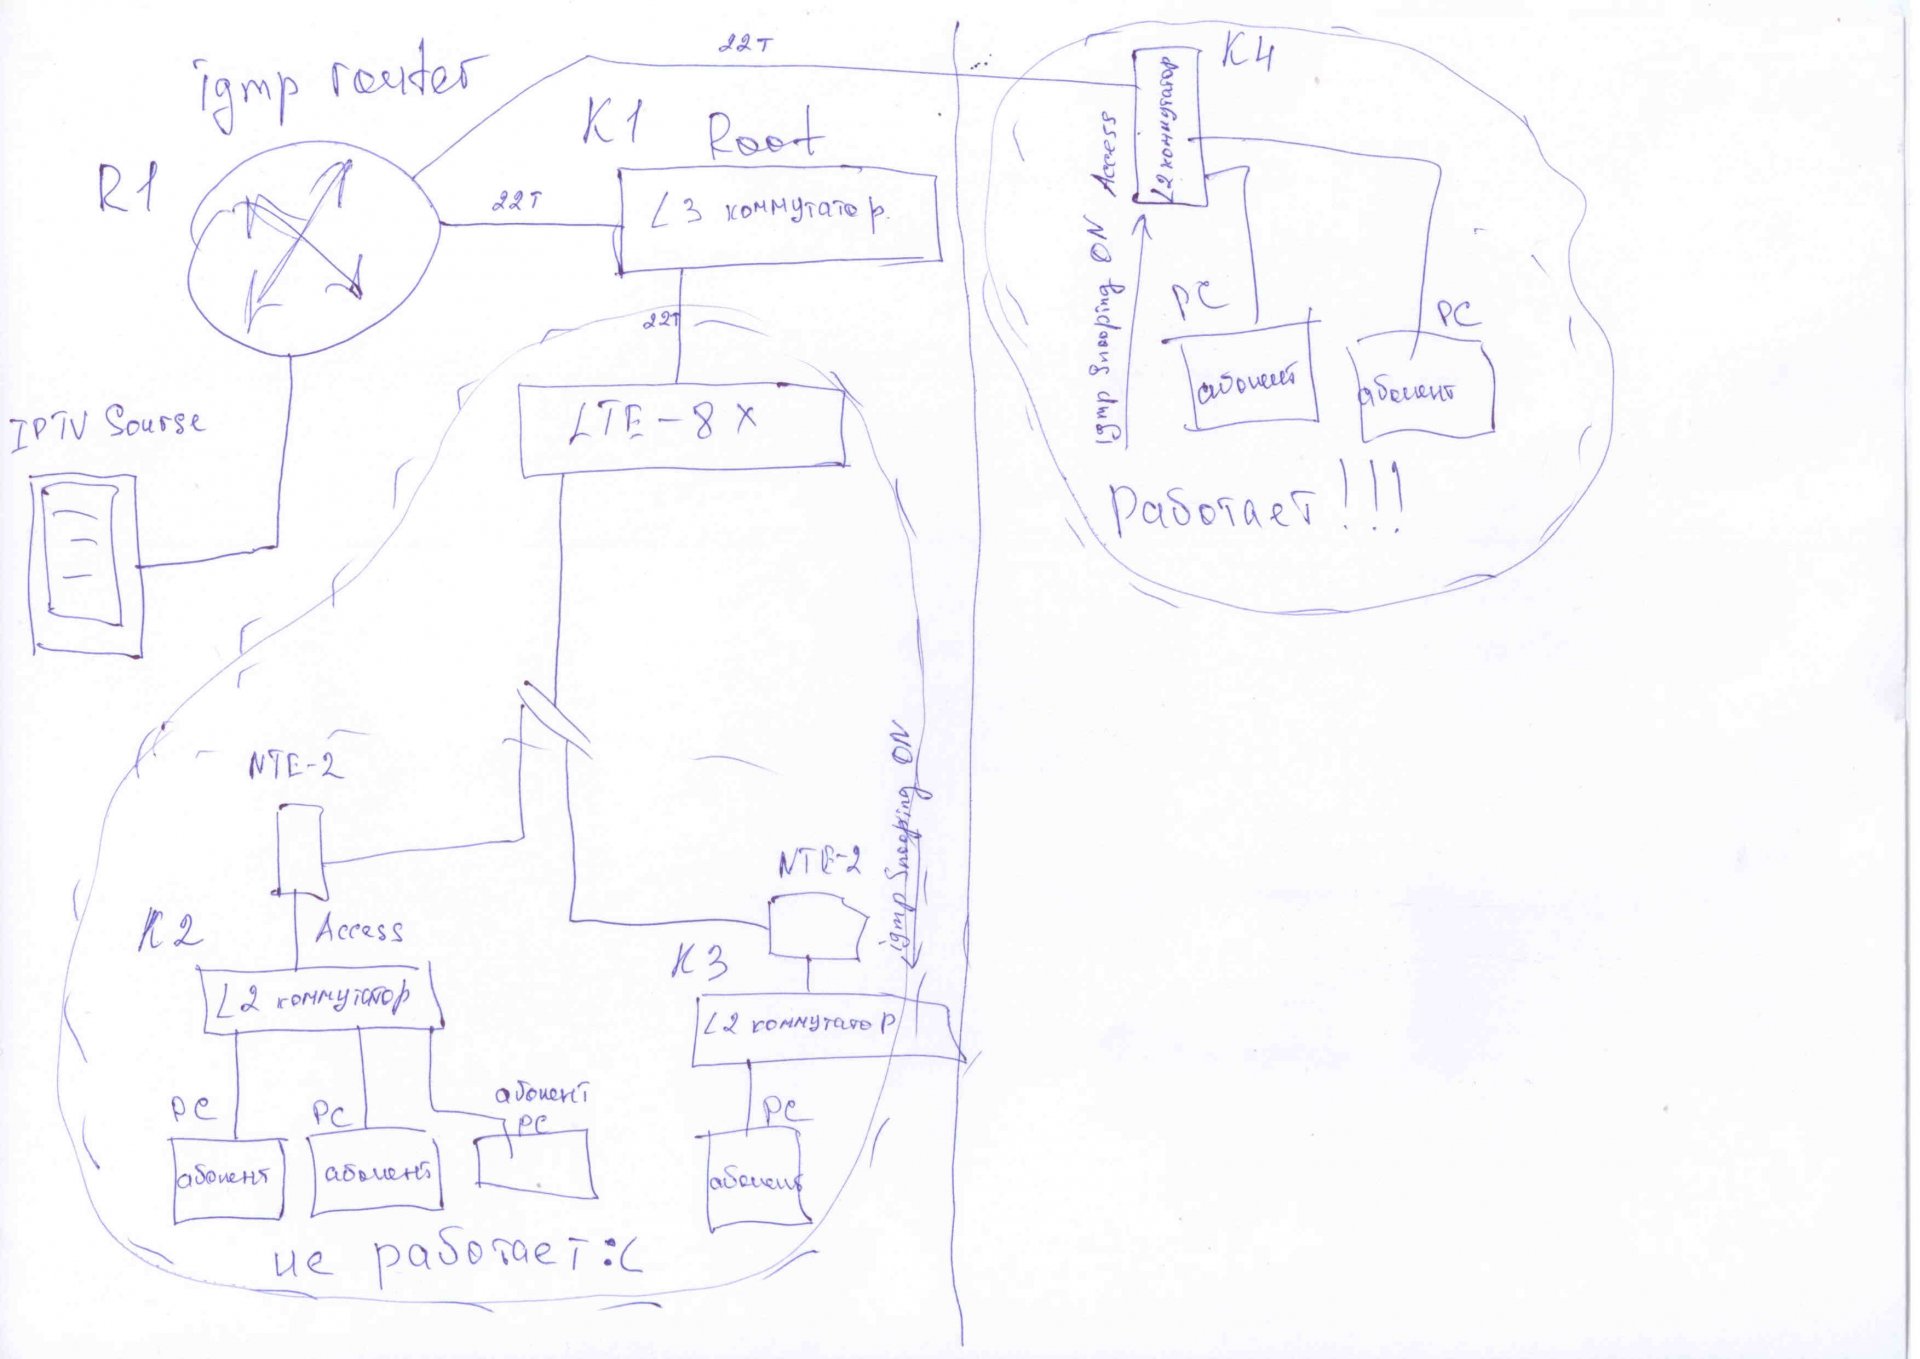 igmp router
R1
22T
K1 Root
22T
L3 коммутатор.
22T
LTE-8X
IPTV Sourse
NTE-2
K2
Access
L2 коммутатор
PC
абонент
PC
абонент
абонент
PC
не работает :(
NTE-2
igmp Snooping ON
K3
L2 коммутатор
PC
абонент
K4
L2 коммутатор
Access
igmp Snooping ON
PC
абонент
PC
абонент
Работает!!!